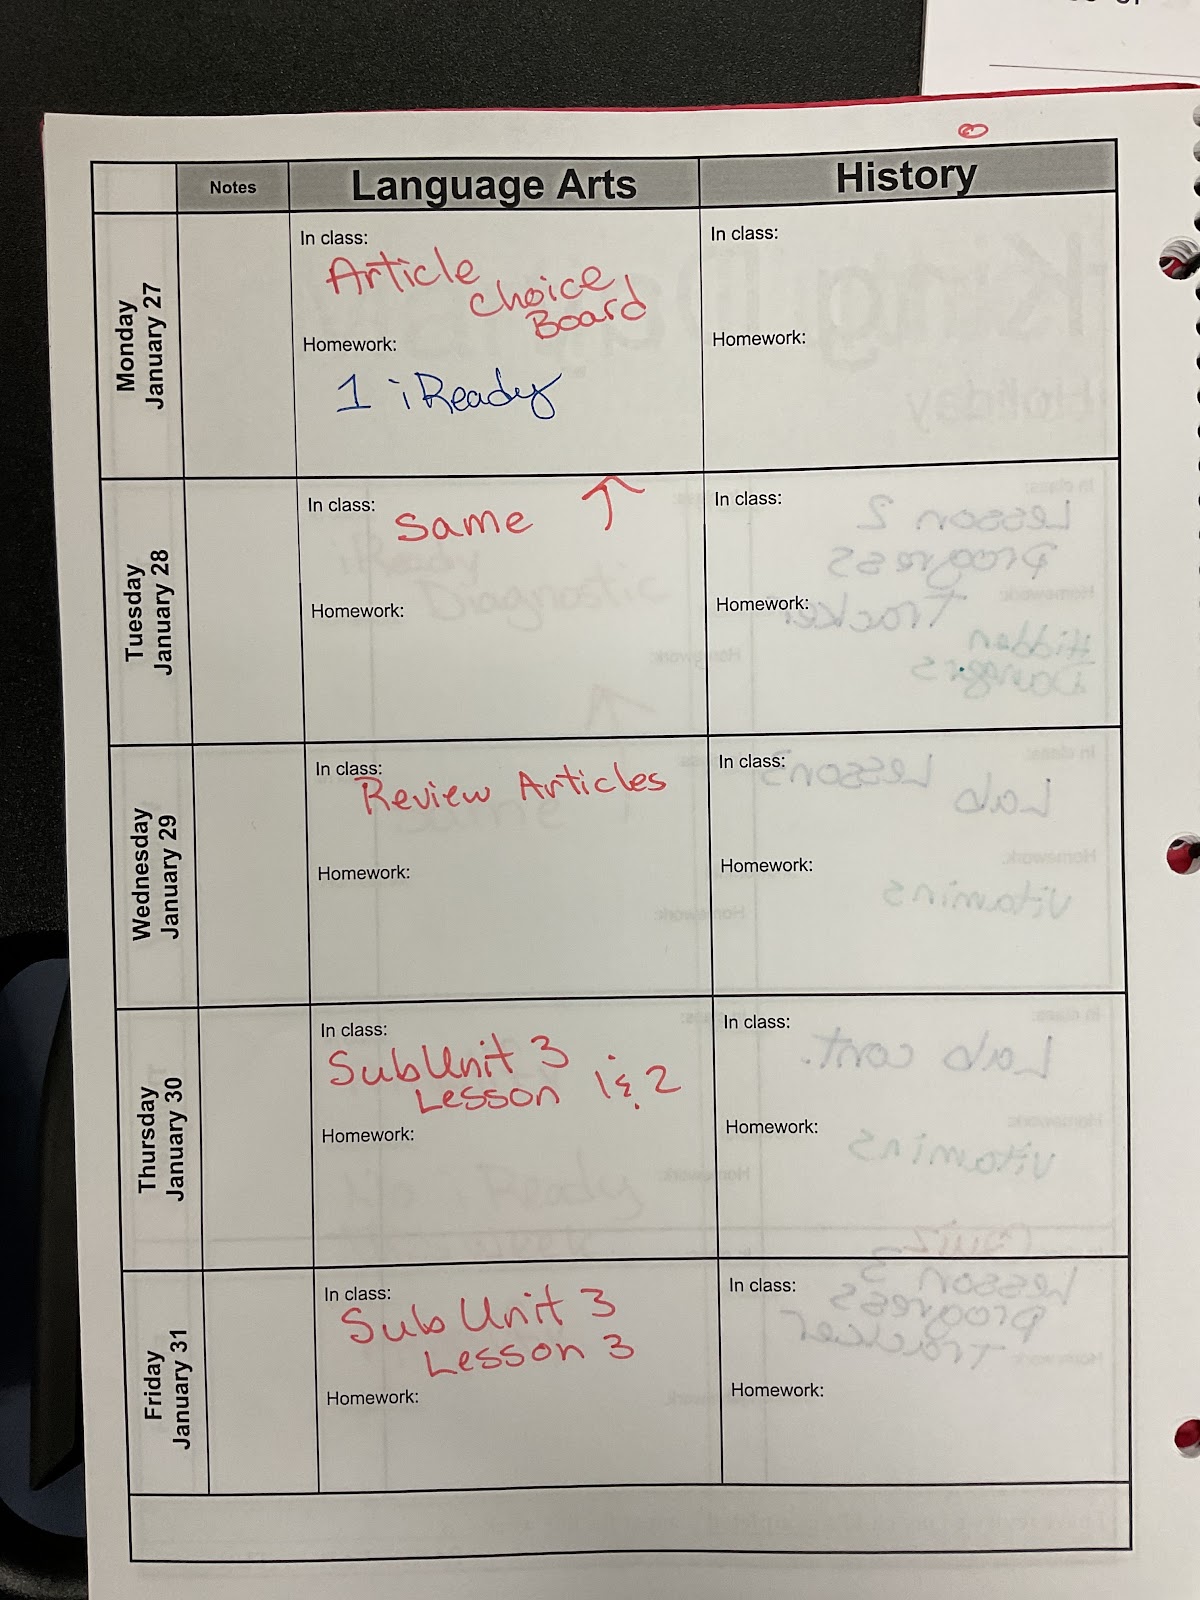 Notes
Language Arts
History
Monday
January 27
In class:
Article
Choice
Board
Homework:
1 iReady
In class:
Homework:
Tuesday
January 28
In class:
Same ↑
Homework:
In class:
Homework:
Wednesday
January 29
In class:
Review Articles
Homework:
In class:
Homework:
Thursday
January 30
In class:
SubUnit 3
Lesson 1 & 2
Homework:
In class:
Homework:
Friday
January 31
In class:
Sub Unit 3
Lesson 3
Homework:
In class:
Homework: